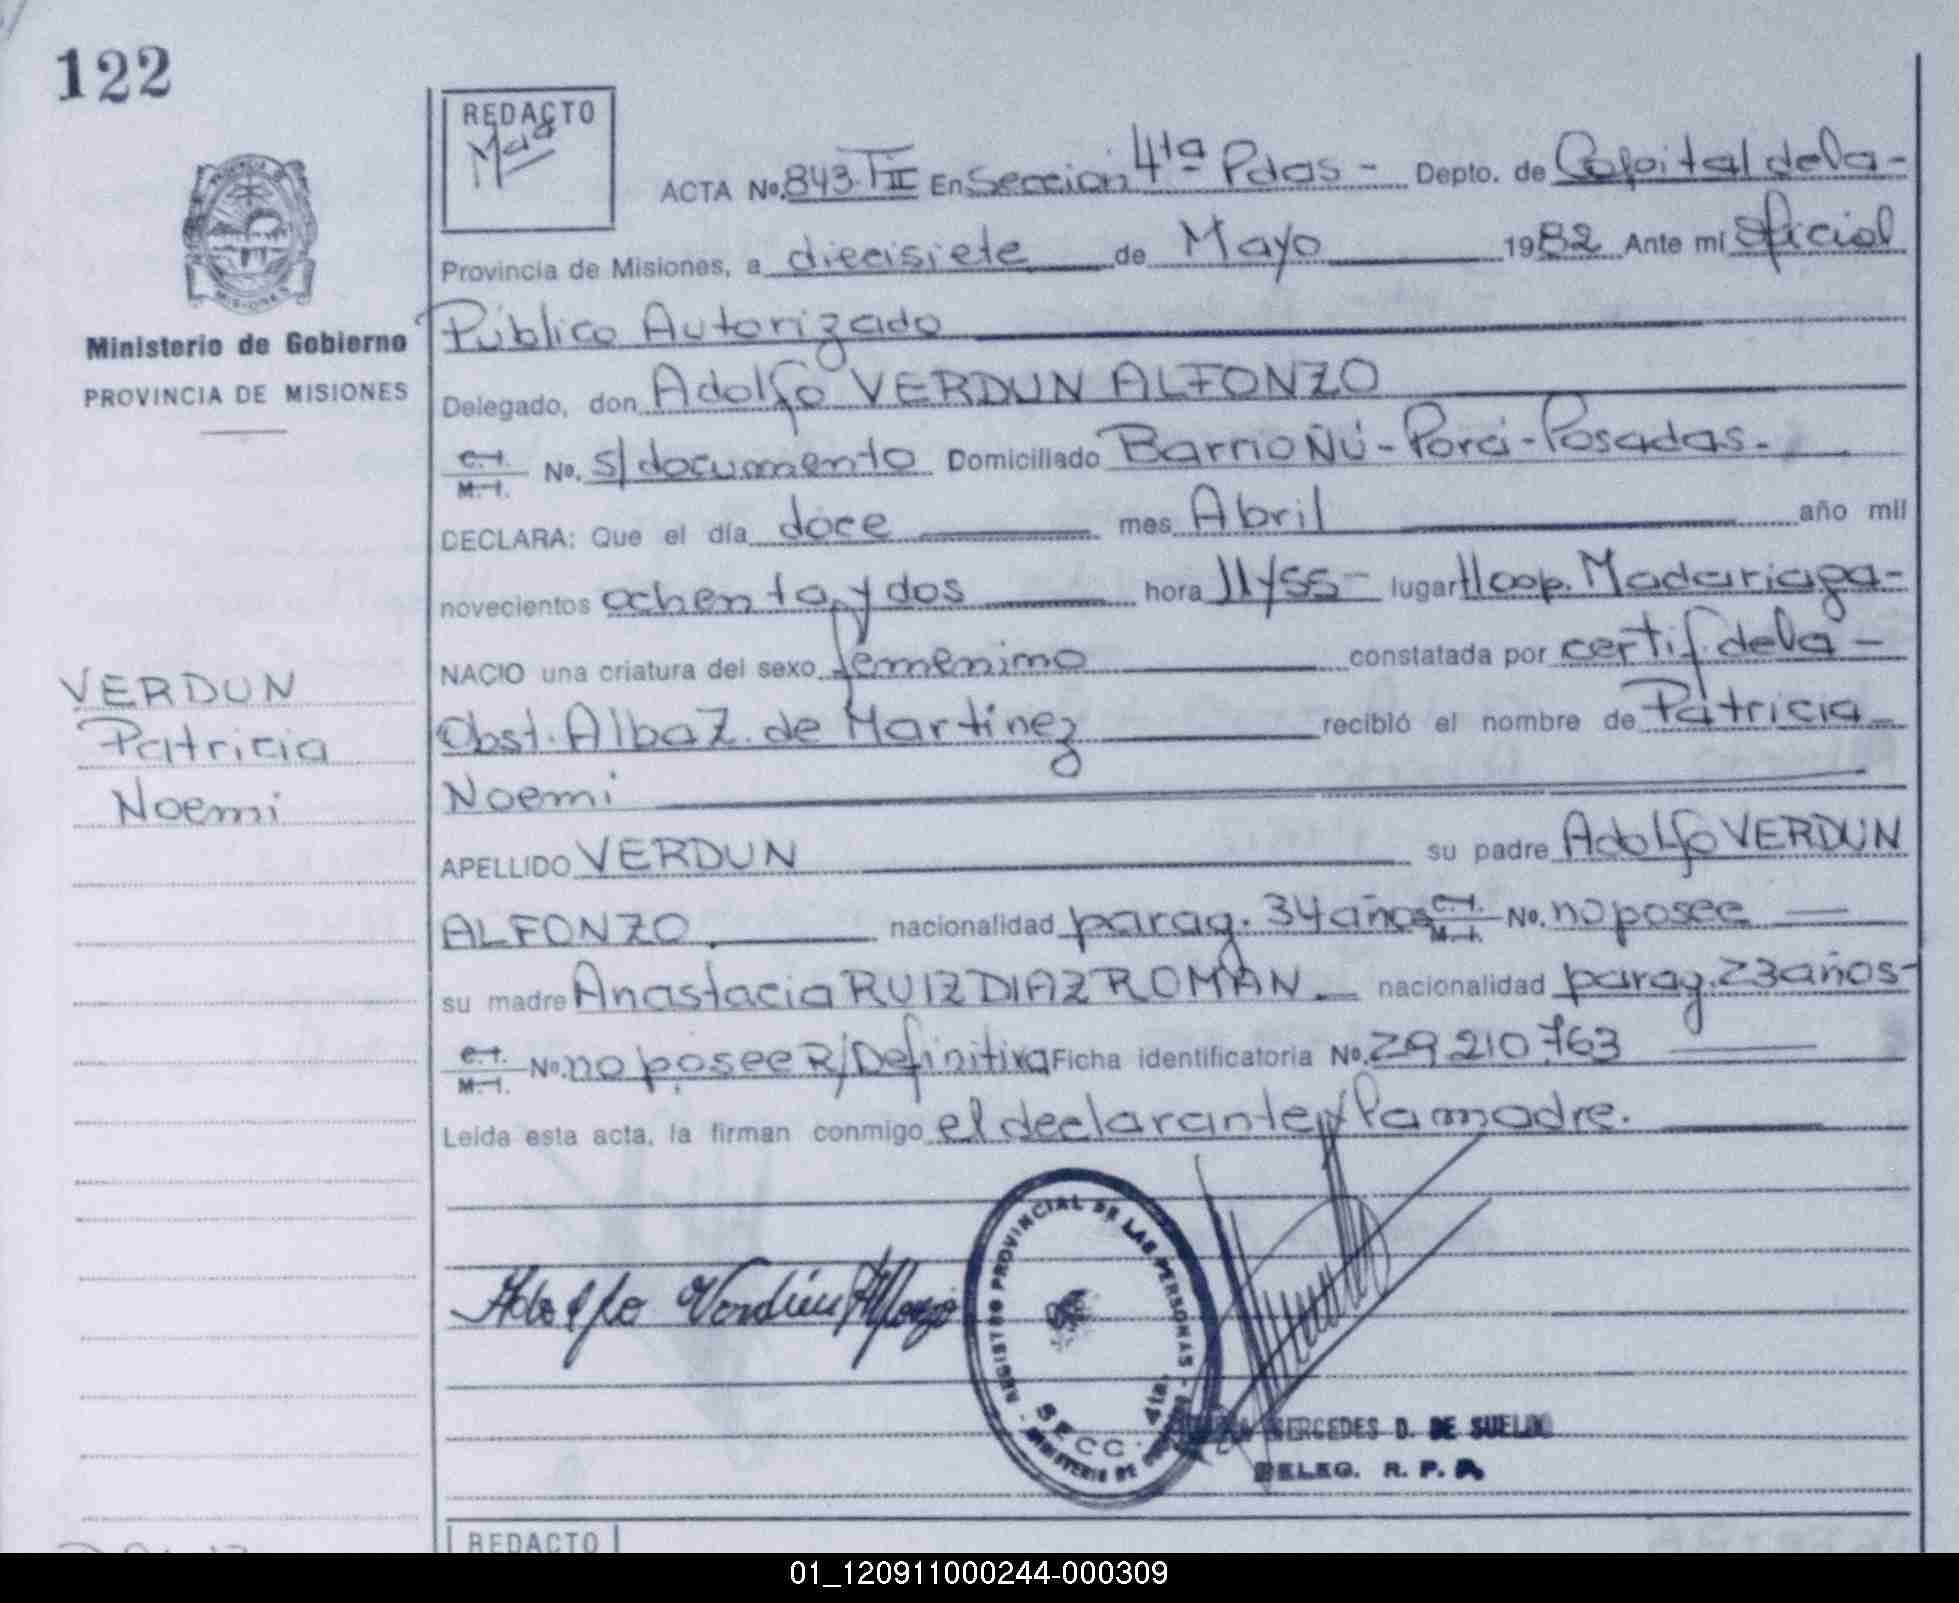 122
REDACTO
ACTA No. 843 TII En Sección 4ta Pdas - Depto. de Capital de la -
Provincia de Misiones, a diecisiete de Mayo 1982 Ante mí Oficial
Público Autorizado
Ministerio de Gobierno
PROVINCIA DE MISIONES
Delegado, don Adolfo VERDUN ALFONZO
C.I. M.I. No. s/documento Domiciliado Barrio Ñú-Porá-Posadas.
DECLARA: Que el día doce mes Abril año mil
novecientos ochenta y dos hora 11y55 lugar Hosp. Madariaga-
NACIO una criatura del sexo femenino constatada por certif. de la -
Obst. Alba Z. de Martínez recibió el nombre de Patricia
Noemi
VERDUN
Patricia
Noemi
APELLIDO VERDUN su padre Adolfo VERDUN
ALFONZO nacionalidad parag. 34 años C.I. M.I. No. no posee
su madre Anastacia RUIZ DIAZ ROMAN nacionalidad parag. 23 años-
C.I. M.I. No. no posee R/Definitiva Ficha identificatoria No. 29.210.763
Leída esta acta, la firman conmigo el declarante y la madre.
Adolfo Verdún Alfonzo
REGISTRO PROVINCIAL DE LAS PERSONAS - MINISTERIO DE
SECC. 4ta.
MERCEDES D. DE SUELDO
DELEG. R. P. P.
REDACTO
01_120911000244-000309